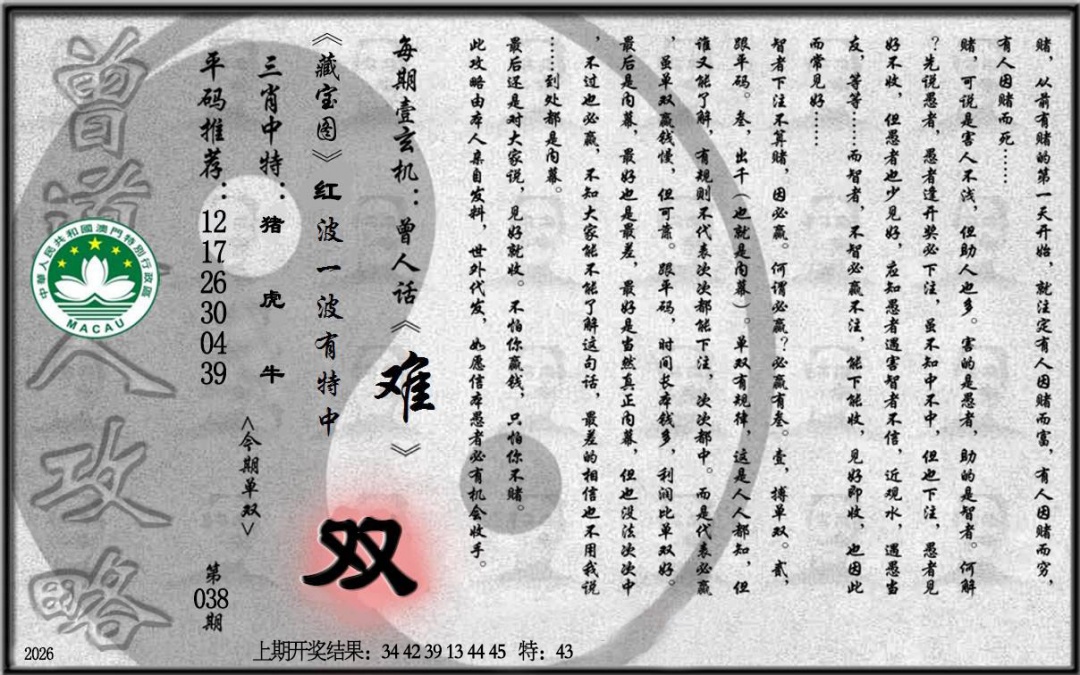 赌，从前有赌的第一天开始，就注定有人因赌而富，有人因赌而穷，
有人因赌而死……
赌，可说是害人不浅，但助人也多。害的是愚者，助的是智者。何解
？先说愚者，愚者逢开奖必下注，虽不知中不中，但也下注，愚者见
好不收，但愚者也少见好，应知愚者遇害智者不信，近观水，遇愚当
友，等等……而智者，不智必赢不注，能下能收，见好即收，也因此
而常见好……
智者下注不算赌，因必赢。何谓必赢？必赢有叁。壹，搏单双。贰，
跟平码。叁，出千（也就是内幕）。单双有规律，这是人人都知，但
谁又能了解，有规则不代表次次都能下注，次次都中。而是代表必赢
，虽单双赢钱慢，但可靠。跟平码，时间长本钱多，利润比单双好。
最后是内幕，最好也是最差，最好是当然真正内幕，但也没法次次中
，不过也必赢，不知大家能不能了解这句话，最差的相信也不用我说
……到处都是内幕。
最后还是对大家说，见好就收。不怕你赢钱，只怕你不赌。
此攻略由本人亲自发料，世外代发，如愿信本愚者必有机会收手。
每期壹玄机：曾人话《难》
《藏宝图》红波一波有特中
双
三肖中特：猪 虎 牛
<今期单双>
平码推荐：12 17 26 30 04 39
第038期
曾道人攻略
中華人民共和國澳門特別行政區
MACAU
2026
上期开奖结果：34 42 39 13 44 45 特：43